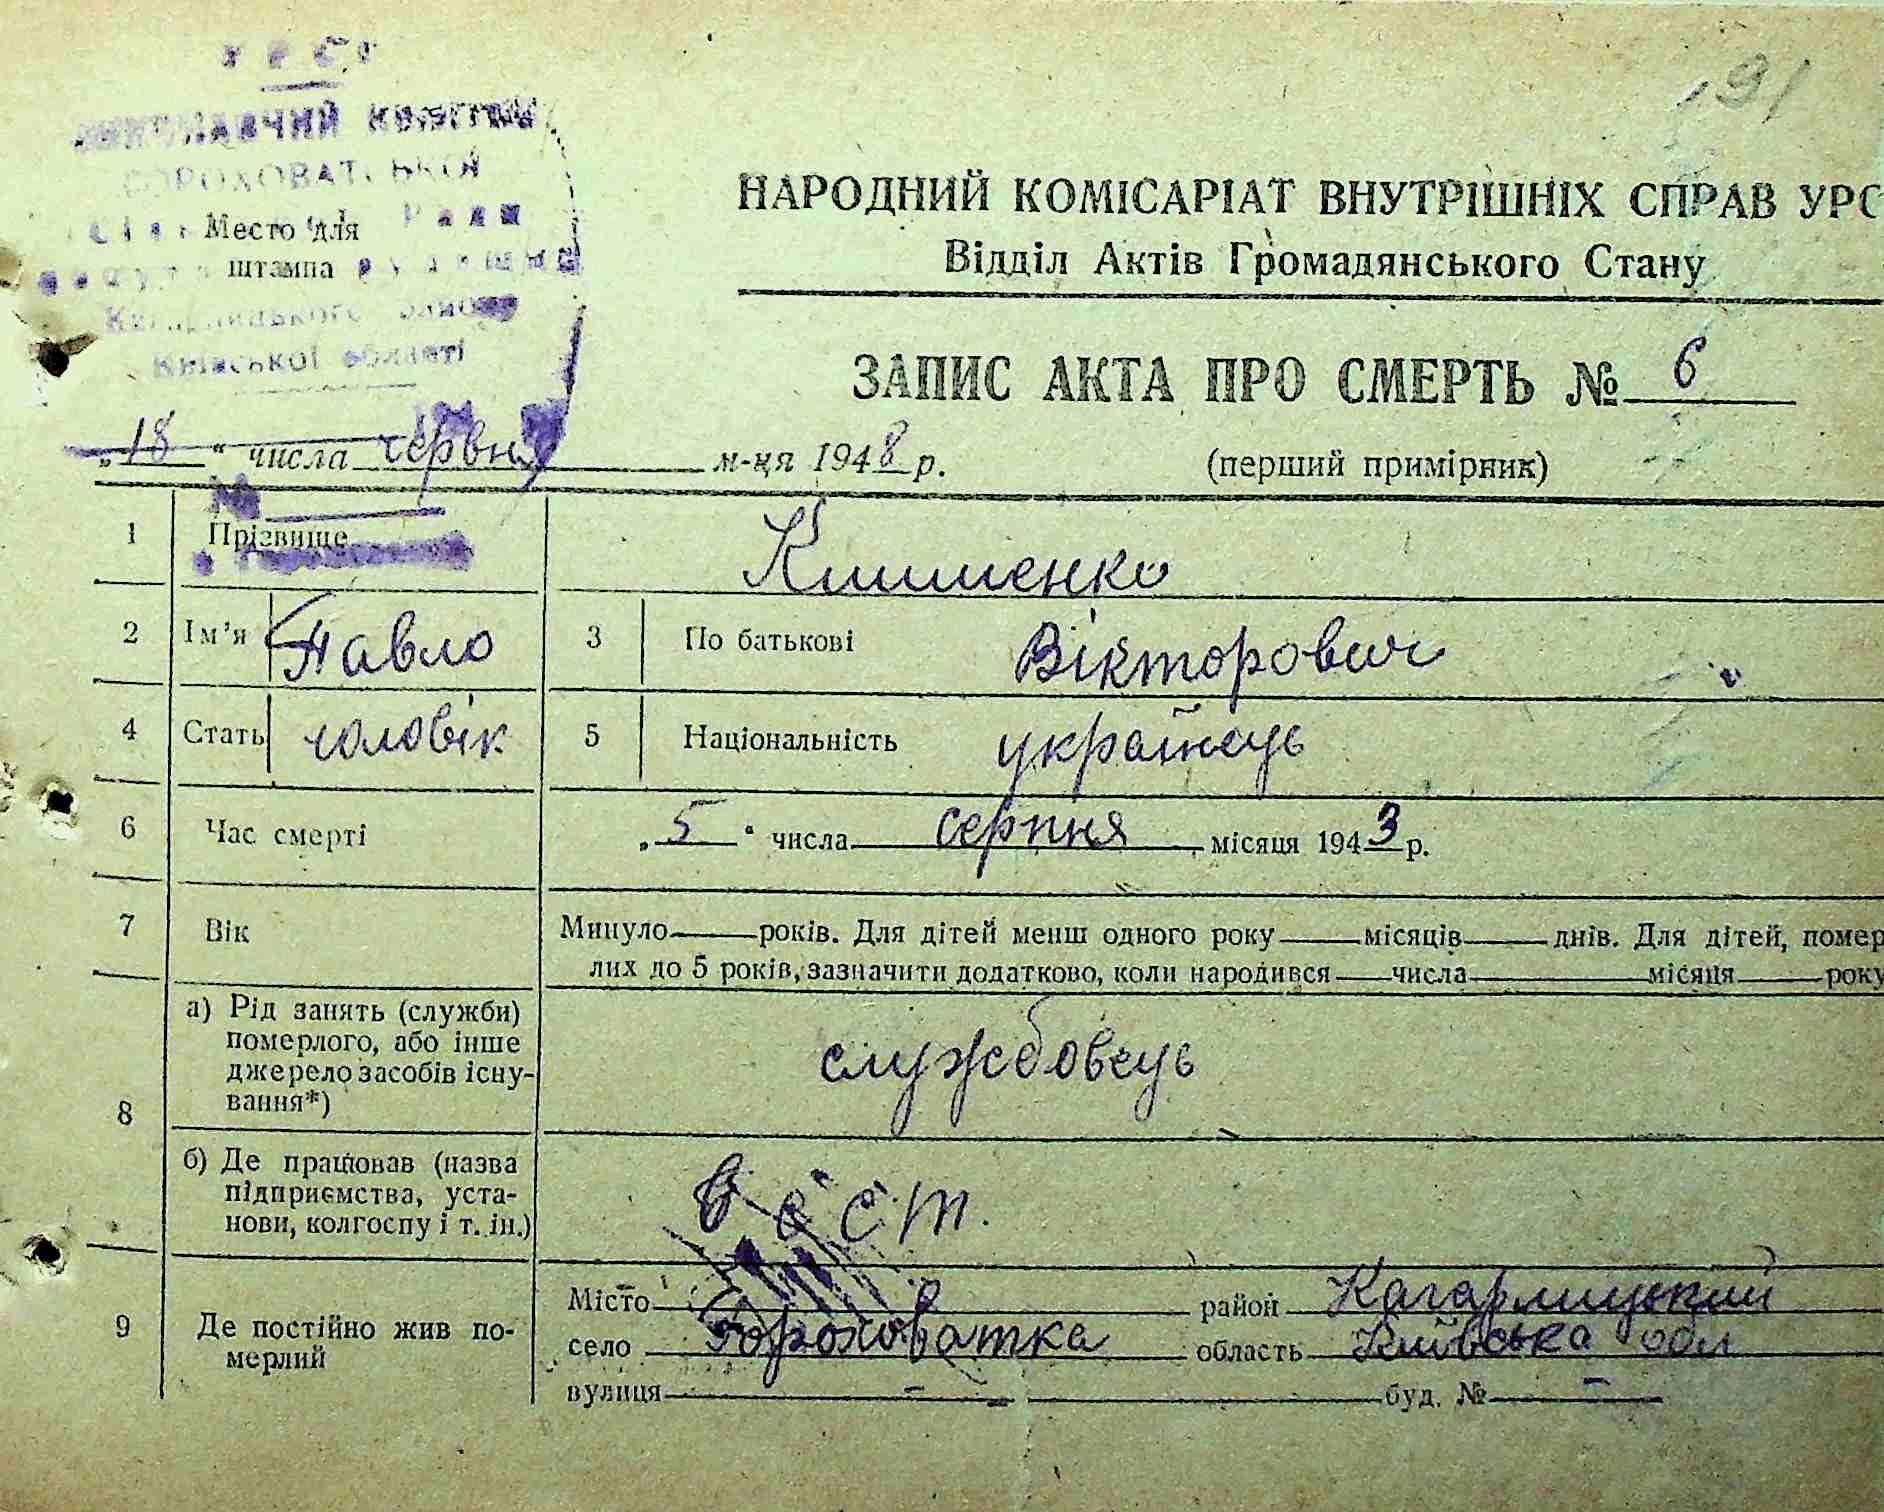 191
УРСР
ВИКОНАВЧИЙ КОМІТЕТ
ГОРОХОВАТСЬКОЙ
Сільської Ради
Место для
штампа
Кагарлицького району
Київської області
НАРОДНИЙ КОМІСАРІАТ ВНУТРІШНІХ СПРАВ УРС
Відділ Актів Громадянського Стану
ЗАПИС АКТА ПРО СМЕРТЬ № 6
„18“ числа червня м-ця 1948 р. (перший примірник)
№
1 Прізвище Клименко
2 Ім'я Павло 3 По батькові Вікторович
4 Стать чоловік 5 Національність українець
6 Час смерті „5“ числа серпня місяця 1943 р.
7 Вік Минуло років. Для дітей менш одного року місяців днів. Для дітей, помер
лих до 5 років, зазначити додатково, коли народився числа місяця року
8 а) Рід занять (служби) померлого, або інше джерело засобів існу-
вання*) службовець
б) Де працював (назва
підприємства, уста-
нови, колгоспу і т. ін.)
9 Де постійно жив по-
мерлий
Місто район Кагарлицький
село Гороховатка область Київська обл
вулиця – буд. № –